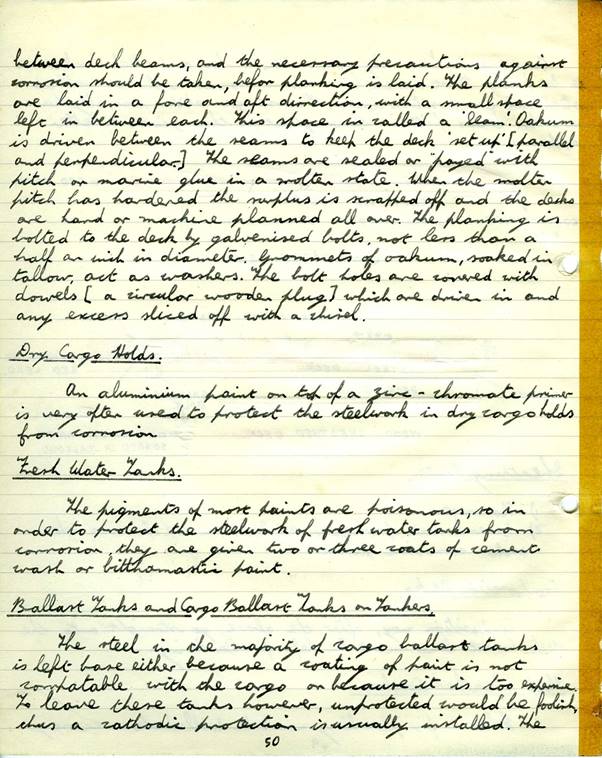 between deck beams, and the necessary precautions against
corrosion should be taken, befor planking is laid. The planks
are laid in a fore and aft dirrection, with a small space
left in between each. This space in called a 'seam'. Oakum
is driven between the seams to keep the deck 'set up' [parallel
and perpendicular] The seams are sealed or "payed" with
pitch or marine glue in a molten state. When the molten
pitch has hardened the surplus is scrapped off and the decks
are hand or machine planned all over. The planking is
bolted to the deck by galvenised bolts, not less than a
half an inch in diameter. Grommets of oakum, soaked in
tallow, act as washers. The bolt holes are covered with
dowels [ a circular wooden plug] which are driven in and
any excess sliced off with a chisel.
Dry Cargo Holds.
An aluminium paint on top of a zinc - chromate primer
is very often used to protect the steelwork in dry cargo holds
from corrosion
Fresh Water Tanks.
The pigments of most paints are poisonous, so in
order to protect the steelwork of fresh water tanks from
corrrosion, they are given two or three coats of cement
wash or bitthamastic paint.
Ballast Tanks and Cargo Ballast Tanks on Tankers,
The steel in the majority of cargo ballast tanks
is left bare either because a coating of paint is not
compatable with the cargo or because it is too expensive.
To leave these tanks however, unprotected would be foolish,
thus a cathodic protection is usually installed. The
50